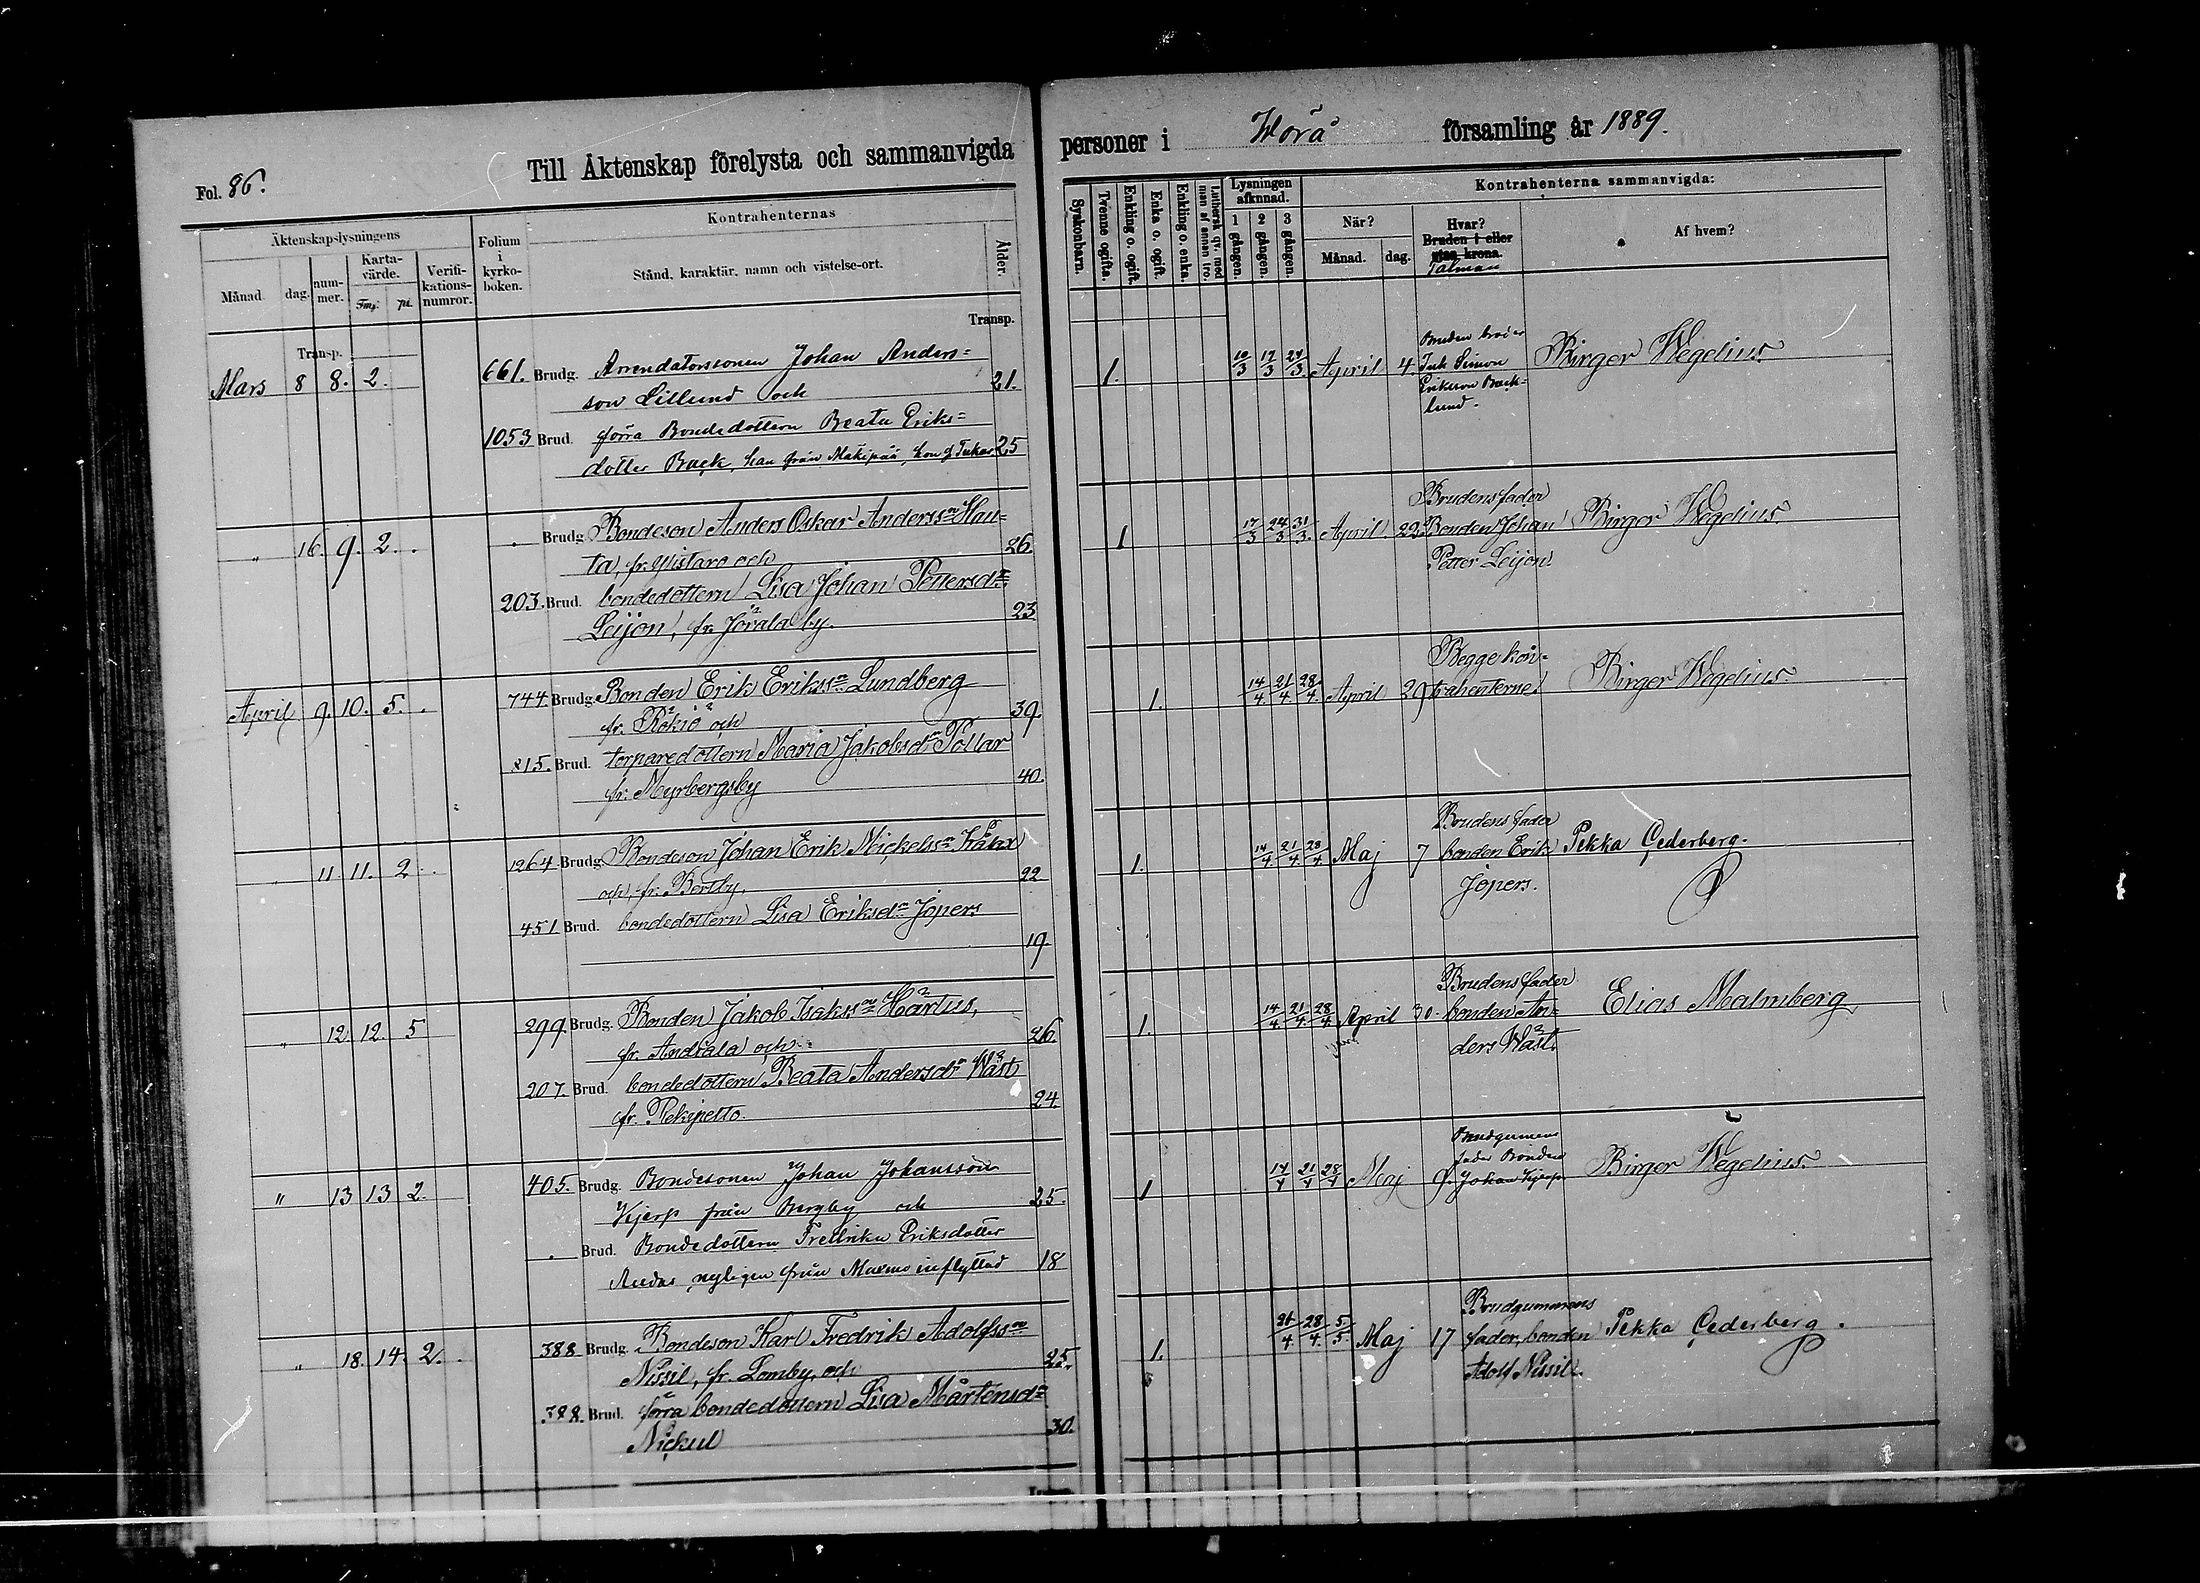 Fol. 86.
Till Äktenskap förelysta och sammanvigda
personer i Wörå församling år 1889.
Äktenskapslysningens
Månad.
dag.
nummer.
Kartavärde.
Fmk. pi.
Verifikationsnumror.
Folium i kyrkoboken.
Kontrahenternas
Stånd, karaktär, namn och vistelse-ort.
Ålder.
Syskonbarn.
Tvenne ogifta.
Enkling o. ogift.
Enka o. ogift.
Enkling o. enka.
Luthersk qv. med man af annan tro.
Lysningen afknnad.
1 gången.
2 gången.
3 gången.
Kontrahenterna sammanvigda:
När?
Månad. dag.
Hvar?
Bruden i eller
utan krona.
Talman
Af hvem?
Transp.
Transp.
Mars 8 8. 2.
661. Brudg. Arrendatorssonen Johan Anders=
son Lillund och 21.
1053 Brud. förra Bondedottern Beata Eriks=
dotter Back, han från Mäkipää, hon f. Tukar 25
1. 10/3 17/3 24/3. April 4.
Brudens broder
Ink Simon
Eriksson Back-
lund.
Birger Wegelius.
" 16. 9. 2. .
. Brudg. Bondeson Anders Oskar Anderssn Hau=
ta, fr. Ylistaro och 26.
203. Brud. bondedottern Lisa Johan Pettersdr
Leijon, fr. Jörala by. 23
1 17/3 24/3 31/3. April 22.
Brudens fader
Bonden Johan
Petter Leijon
Birger Wegelius.
April 9. 10. 5. .
744. Brudg. Bonden Erik Erikssn Lundberg
fr. Rökiö och 39.
815. Brud. torparedottern Maria Jakobsdr Pollar
fr. Myrbergsby 40.
1. 14/4. 21/4 28/4. April 29
Begge kon=
trahenterne
Birger Wegelius.
" 11 11. 2. .
1264 Brudg. Bondeson Johan Erik Mickelssn
och, fr. Bertby. 22
451 Brud. bondedottern Lisa Eriksdr Jöpers
19.
1. 14/4 21/4 28/4 Maj 7
Brudens fader
bonden Erik
Jöpers.
Pekka Cederberg.
" 12. 12. 5
299. Brudg. Bonden Jakob Isakssn Härtus,
fr. Andiala och 26.
207. Brud. bondedottern Beata Andersdr Wäst
fr. Rekipelto. 24.
1. 14/4 21/4 28/4 April 30.
Brudens fader
bonden An=
ders Wäst.
Elias Malmberg
" 13 13 2.
405. Brudg. Bondesonen Johan Johansson
Kjerp från Bergby och 25.
. Brud. Bondedottern Fredrika Eriksdotter
nyligen från Maxmo inflyttad 18
1 14/4 21/4 28/4 Maj 9.
Brudgummens
fader Bonden
Johan Kjerp
Birger Wegelius.
" 18. 14. 2. .
388. Brudg. Bondeson Karl Fredrik Adolfssn
Nissil, fr. Lomby, och 25.
388. Brud. förra bondedottern Lisa Mårtensdr
Nickul 30.
1. 21/4. 28/4. 5/5. Maj 17
Brudgummens
fader, bonden
Adolf Nissil.
Pekka Cederberg.